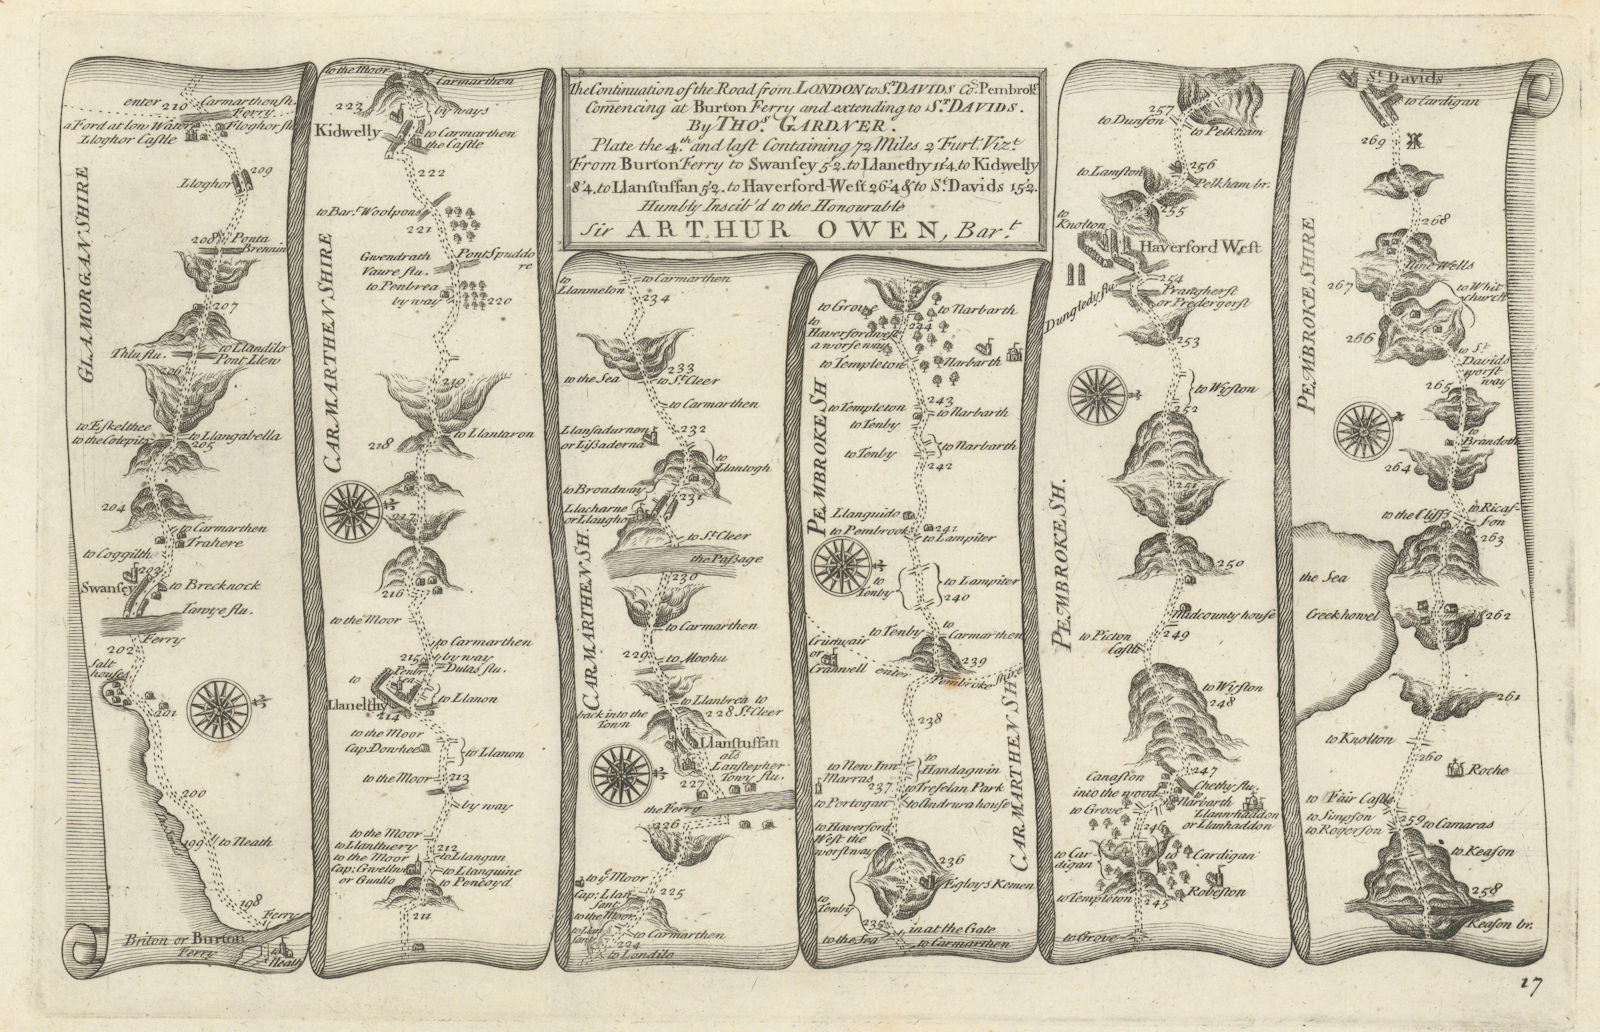 The Continuation of the Road from LONDON to St. DAVIDS Co. Pembrok
Comencing at Burton Ferry and extending to St. DAVIDS.
By THOs. GARDNER.
Plate the 4th. and last Containing 72 Miles 2 Furl. Vizt.
From Burton Ferry to Swansey 5'2. to Llanethy 11'4. to Kidwelly
8'4. to Llanstuffan 5'2. to Haverford-West 26'4 & to St. Davids 15'2.
Humbly Inscib'd to the Honourable
Sir ARTHUR OWEN, Bart.
GLAMORGAN SHIRE
enter
210
Carmarthensh.
Ferry
a Ford at low Water
Lloghor Castle
Floghor flu
209
Lloghor
208
Ponta
Brennin
207
Thlu flu.
to Llandilo
Pont Llew
206
to Eskelthee
to the Colepits
to Llangabella
205
204
to Carmarthen
Trahere
to Coggilth
203
Swansey
to Brecknock
Tawye flu.
Ferry
202
Salt
houses
201
200
199
to Neath
198
Ferry
Briton or Burton
Ferry
to
Neath
CARMARTHEN SHIRE
to the Moor
to
Carmarthen
223
by ways
Kidwelly
to Carmarthen
the Castle
222
to Bar. Woolpons
221
Gwendrath
Vaure flu.
Pont Spuddo
re
to Penbrea
by way
220
219
218
to Llantaron
217
216
to the Moor
to Carmarthen
by way
215
Dulas flu.
to
Llanelthy
to Llanon
214
to the Moor
Cap: Dowhee
to Llanon
to the Moor
213
by way
to the Moor
to Llanthuery
to the Moor
Cap: Gwelln
or Guallo
212
to Llangan
to Llanguine
to Pencoyd
211
CARMARTHEN SH.
to
Llanmelon
to Carmarthen
234
233
to the Sea
to St. Cleer
to Carmarthen
Llansadurnon
or Lißaderna
232
to
Llantogh
to Broadway
231
Llacharne
or Llaugho
to St. Cleer
the Paßage
230
to Carmarthen
229
to Moohu
to Llanbrea to
228 St. Cleer
back into the
Town
Llanstuffan
als
Lanstepher
Towy flu.
227
the Ferry
226
to ye Moor
Cap: Llan
sant
225
to the Moor
to Carmarthen
224
to Landilo
PEMBROKE SH
to Grove
to Narbarth
to
Haverfordwest
a worse way
244
to Templeton
Narbarth
243
to Templeton
to Tenby
to Narbarth
to Tenby
to Narbarth
242
Llanguido
to Pembrook
241
to Lampiter
to
Tenby
to Lampiter
240
to Tenby
to
Carmarthen
Cranwell
239
enter
Pembroke shire
CARMARTHEN SH
238
to New Inn
Marras
to
Handagwin
237
to Trefelan Park
to Portogan
to Andrura house
to Haverford
West the
worst way
236
Egloys Kemen
to
Tenby
235
in at the Gate
to the Sea
to Carmarthen
PEMBROKE SH.
257
to Dunson
to Pelkham
256
to Lamston
Pelkham br.
to
Knolton
255
Haverford West
254
Prangherst
or Predergerst
Dungledy flu
253
to Wyston
252
251
250
Midcounty house
249
to Picton
Castle
to Wyston
248
247
Canaston
into the wood
Chethy flu.
to
Narbarth
to Grove
Llannhaddon
or Llanhaddon
246
to Car-
digan
to
Cardigan
to Templeton
Robeston
245
to Grove
PEMBROKE SHIRE
St. Davids
to Cardigan
269
268
Nine Wells
267
to Whit
church
266
to St.
Davids
worst
way
265
to
Brandoth
264
to the Cliffs
to Ricas-
son
263
the Sea
Creekhowel
262
261
to Knolton
260
Roche
to Fair Castle
to Simpson
to Rogerson
259
to Camaras
to Keason
258
Keason br.
17